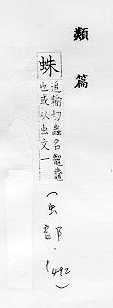 類篇
蛛
追輸切蟲名鼅鼄
也或从虫文一
(虫部·492)